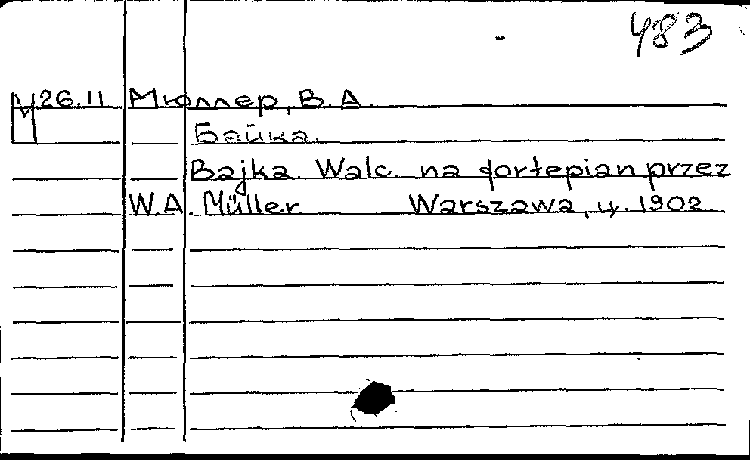 483
М26.11 Мюллер, В. А.
Байка.
Bajka. Walc. na fortepian przez
W.A. Müller Warszawa, ц. 1902